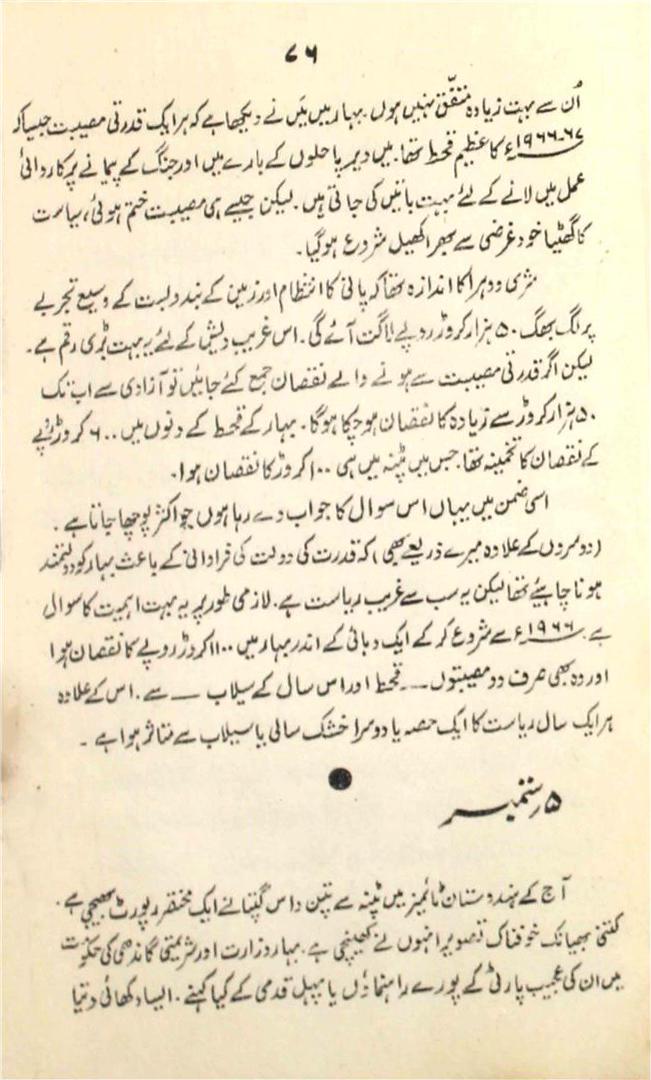 ۷۶
اُن سے بہت زیادہ متفّق نہیں ہوں۔ بہار میں میَں نے دیکھا ہے کہ ہر ایک قدرتی مصیبت جیسا کہ
۱۹۶۶-۶۷ء کا عظیم قحط تھا۔ میں دیر پا حلوں کے بارے میں اور جنگ کے پیمانے پر کاروائی
عمل میں لانے کے لئے بہت باتیں کی جاتی ہیں۔ لیکن جیسے ہی مصیبت ختم ہوئی، سیاست
کا گھٹیا خود غرضی سے بھرا کھیل شروع ہوگیا۔
مشری ووہرا کا اندازہ تھا کہ پانی کا انتظام اور زمین کے بندوبست کے وسیع تجربے
پر لگ بھگ ۵۰ ہزار کروڑ روپے لاگت آئے گی۔ اس غریب دیش کے لئے یہ بہت بڑی رقم ہے۔
لیکن اگر قدرتی مصیبت سے ہونے والے نقصان جمع کئے جائیں تو آزادی سے اب تک
۵۰ ہزار کروڑ سے زیادہ کا نقصان ہو چکا ہوگا۔ بہار کے قحط کے دنوں میں ۶۰۰ کروڑ روپے
کے نقصان کا تخمینہ تھا۔ جس میں پٹنہ میں ہی ۱۰۰ کروڑ کا نقصان ہوا۔
اسی ضمن میں یہاں اس سوال کا جواب دے رہا ہوں جو اکثر پوچھا جاتا ہے۔
(دوسروں کے علاوہ میرے ذریعے بھی) کہ قدرت کی دولت کی فراوانی کے باعث بہار کو دولتمند
ہونا چاہیئے تھا لیکن یہ سب سے غریب ریاست ہے۔ لازمی طور پر یہ بہت اہمیت کا سوال
ہے۔ ۱۹۶۶ء سے شروع کر کے ایک دہائی کے اندر بہار میں ۱۱۰۰ کروڑ روپے کا نقصان ہوا
اور وہ بھی صرف دو مصیبتوں — قحط اور اس سال کے سیلاب — سے۔ اس کے علاوہ
ہر ایک سال ریاست کا ایک حصہ یا دوسرا خشک سالی یا سیلاب سے متاثر ہوا ہے۔
●
۵ ستمبر
آج کے ہندوستان ٹائمیز میں پٹنہ سے نتِن داس گپتا نے ایک مختصر رپورٹ بھیجی ہے۔
کتنی بھیانک خوفناک تصویر انہوں نے کھینچی ہے۔ بہار وزارت اور شریمتی گاندھی کی حکومت
میں ان کی عجیب پارٹی کے پورے راہنماؤں یا پہل قدمی کے کیا کہنے۔ ایسا دکھائی دیتا